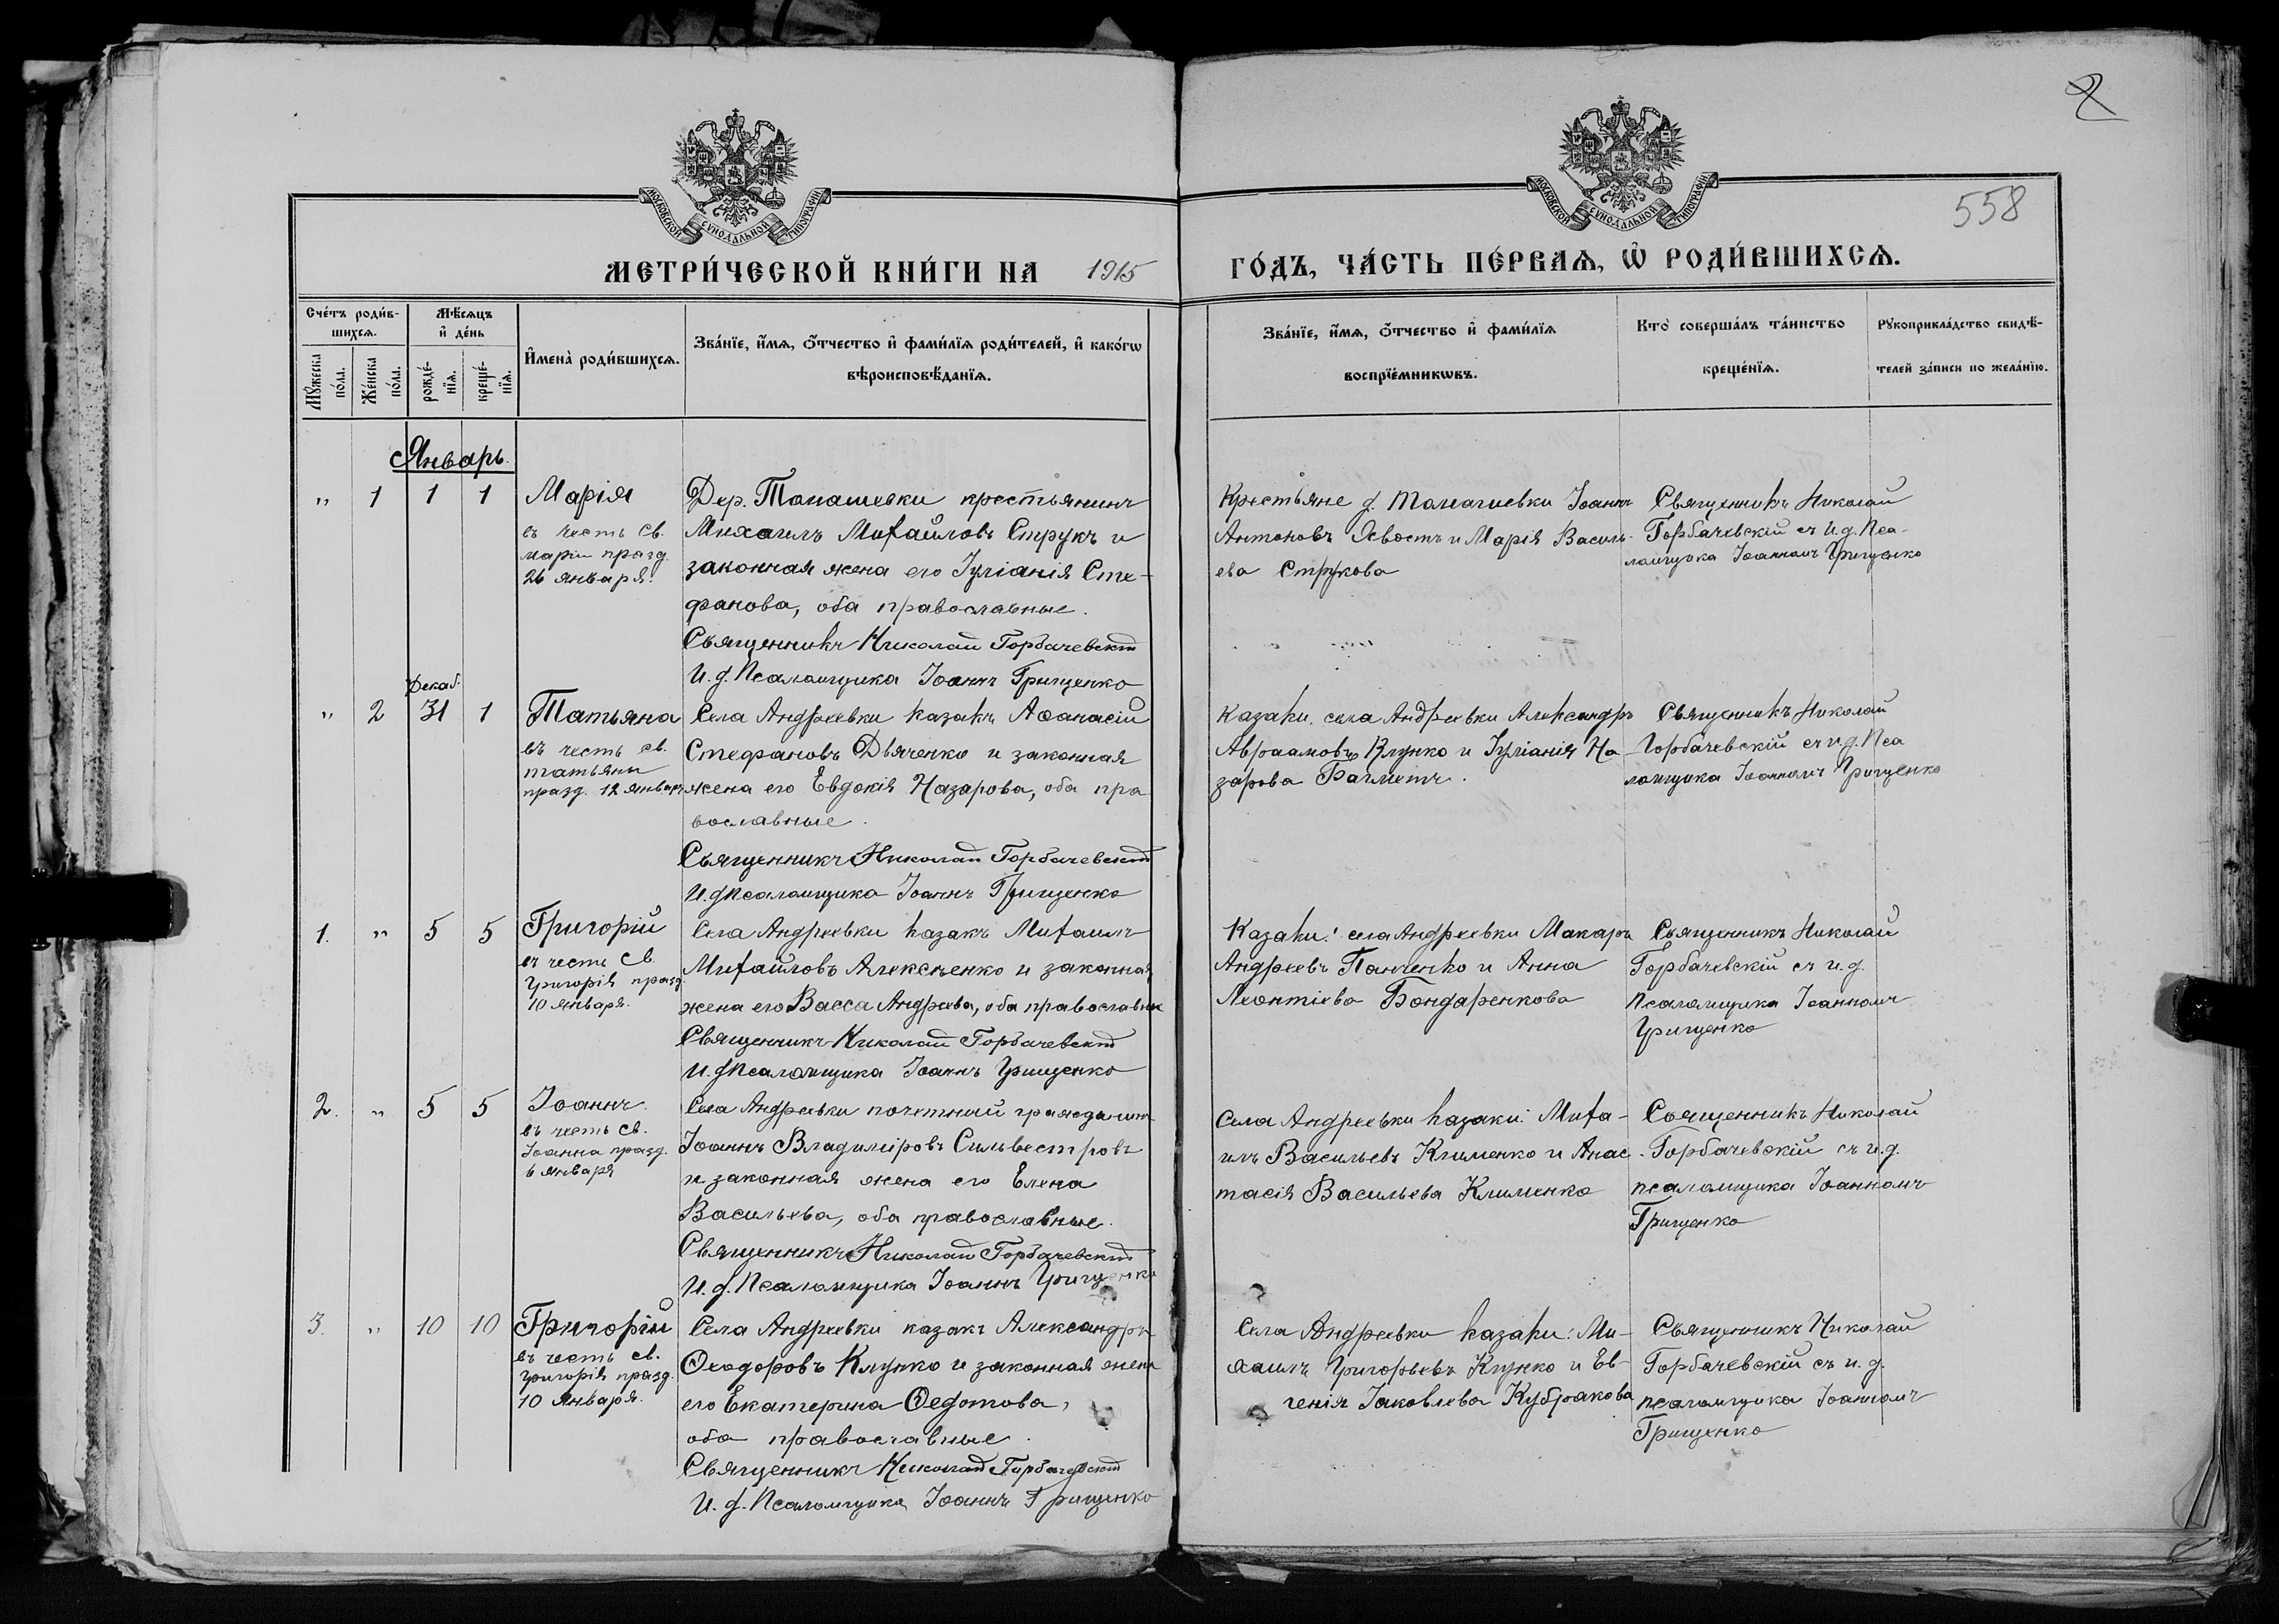 2
558
МОСКОВСКОЙ СѴНОДАЛЬНОЙ ТИПОГРАФІИ
МОСКОВСКОЙ СѴНОДАЛЬНОЙ ТИПОГРАФІИ
МЕТРИ́ЧЕСКОЙ КНИ́ГИ НА 1915 ГО́ДЪ, ЧА́СТЬ ПЕ́РВАѦ, Ѡ҆ РОДИ́ВШИХСѦ.
Сче́тъ роди́в-
шихсѧ.
Мꙋ́жеска по́ла.
Же́нска по́ла.
Мѣ́сѧцъ
и҆ де́нь
рожде́-
нїѧ.
креще́-
нїѧ.
И҆мена̀ роди́вшихсѧ.
Зва́нїе, и҆́мѧ, ѻ҆́тчество и҆ фами́лїѧ роди́телей, и҆ како́гѡ
вѣроисповѣ́данїѧ.
Зва́нїе, и҆́мѧ, ѻ҆́тчество и҆ фами́лїѧ
воспрїе́мникѡвъ.
Кто̀ соверша́лъ та́инство
креще́нїѧ.
Рꙋкоприкла́дство свидѣ́-
телей за́писи по жела́нїю.
Январь.
" 1 1 1
Марія
въ честь св.
маріи празд.
26 января.
Дер. Томашевки крестьянинъ
Михаилъ Михайловъ Струкъ и
законная жена его Іуліанія Сте-
фанова, оба православные.
Священникъ Николай Горбачевскій
И. д. Псаломщика Іоаннъ Грищенко
Крестьяне д. Томашевки Іоаннъ
Антоновъ и Марія Василь-
ева Струкова
Священникъ Николай
Горбачевскій съ и. д. Пса-
ломщика Іоанномъ Грищенко
Декаб.
" 2 31 1
Татьяна
въ честь св.
татьяны
празд. 12 января
Села Андреевки казакъ Аѳанасій
Стефановъ Дьяченко и законная
жена его Евдокія Назарова, оба пра
вославные.
Священникъ Николай Горбачевскій
И. д Псаломщика Іоаннъ Грищенко
Казаки села Андреевки Александръ
Авраамовъ Клунко и Іуліанія На-
зарова Багметъ.
Священникъ Николай
Горбачевскій съ и д. Пса
ломщика Іоанномъ Грищенко
1. " 5 5
Григорій
въ честь св.
Григорія празд.
10 января.
Села Андреевки казакъ Михаилъ
Михайловъ Алексѣенко и законная
жена его Васса Андреева, оба православные
Священникъ Николай Горбачевскій
И. д Псаломщика Іоаннъ Грищенко
Казаки: села Андреевки Макаръ
Андреевъ Панченко и Анна
Леонтіева Бондаренкова
Священникъ Николай
Горбачевскій съ и. д.
псаломщика Іоанномъ
Грищенко
2. " 5 5
Іоаннъ
въ честь св.
Іоанна празд.
6 января
Села Андреевки почетный гражданинъ
Іоаннъ Владиміровъ Сильвестровъ
и законная жена его Елена
Васильева, оба православные.
Священникъ Николай Горбачевскій
И. д. Псаломщика Іоаннъ Грищенко
Села Андреевки казаки: Миха-
илъ Васильевъ Клименко и Анас-
тасія Васильева Клименко
Священникъ Николай
Горбачевскій съ и. д.
псаломщика Іоанномъ
Грищенко
3. " 10 10
Григорій
въ честь св.
Григорія празд.
10 января.
Села Андреевки казакъ Александръ
Ѳеодоровъ Клунко и законная жена
его Екатерина Ѳедотова,
оба православные.
Священникъ Николай Горбачевскій
И. д. Псаломщика Іоаннъ Грищенко
Села Андреевки казаки: Ми-
хаилъ Григорьевъ Клунко и Ев-
генія Іаковлева Кубракова
Священникъ Николай
Горбачевскій съ и. д.
псаломщика Іоанномъ
Грищенко